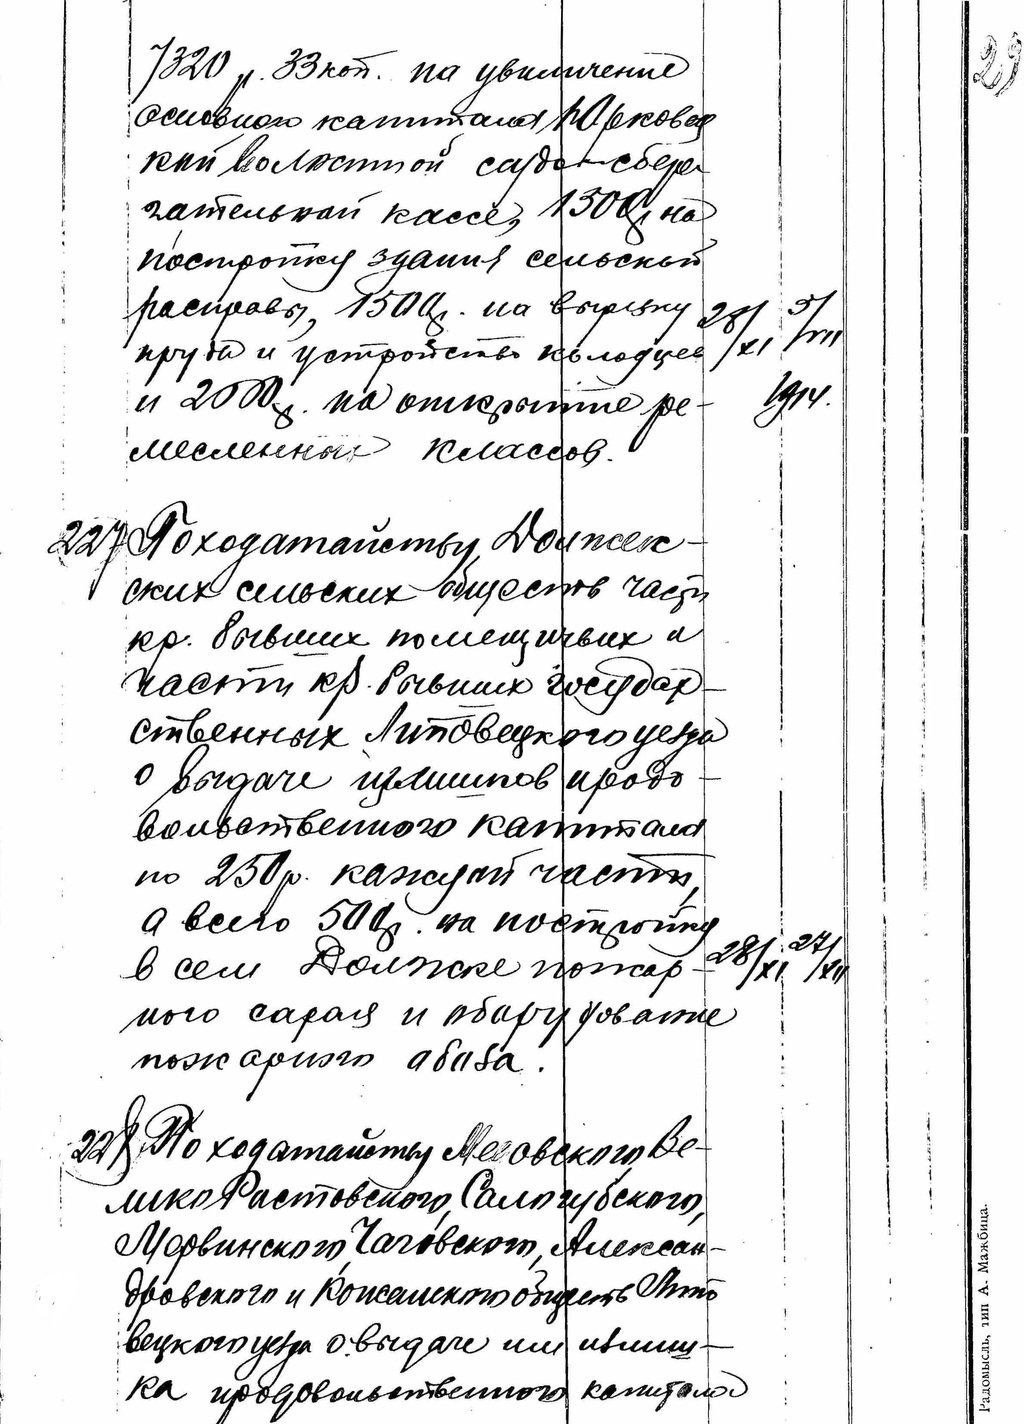 29
7320 р. 33 коп. на увеличение
основного капитала Юрковец
кий волостной ссудо-сбере
гательной кассе, 1500р. на
постройку здания сельской
расправы, 1500р. на вырезку 28/XI 5/VII
пруда и устройство колодцев
и 2000р. на открытие ре- 1914.
месленных классов.
227 По ходатайству Должек-
ских сельских обществ части
кр. бывших помещичьих и
части кр. бывших государ-
ственных Липовецкого уезда
о выдаче излишков продо-
вольственного капитала
по 250р. каждой части,
а всего 500р. на постройку
в селе Должке пожар- 28/XI 27/XII
ного сарая и оборудование
пожарного обоза.
228 По ходатайству Ве-
лико Ростовского, Сологубского,
Мервинского, Чаговского, Алексан-
дровского и обществ Липо
вецкого уезда о выдаче им излиш-
ка продовольственного капитала
Радомысль, тип А. Мажбица.